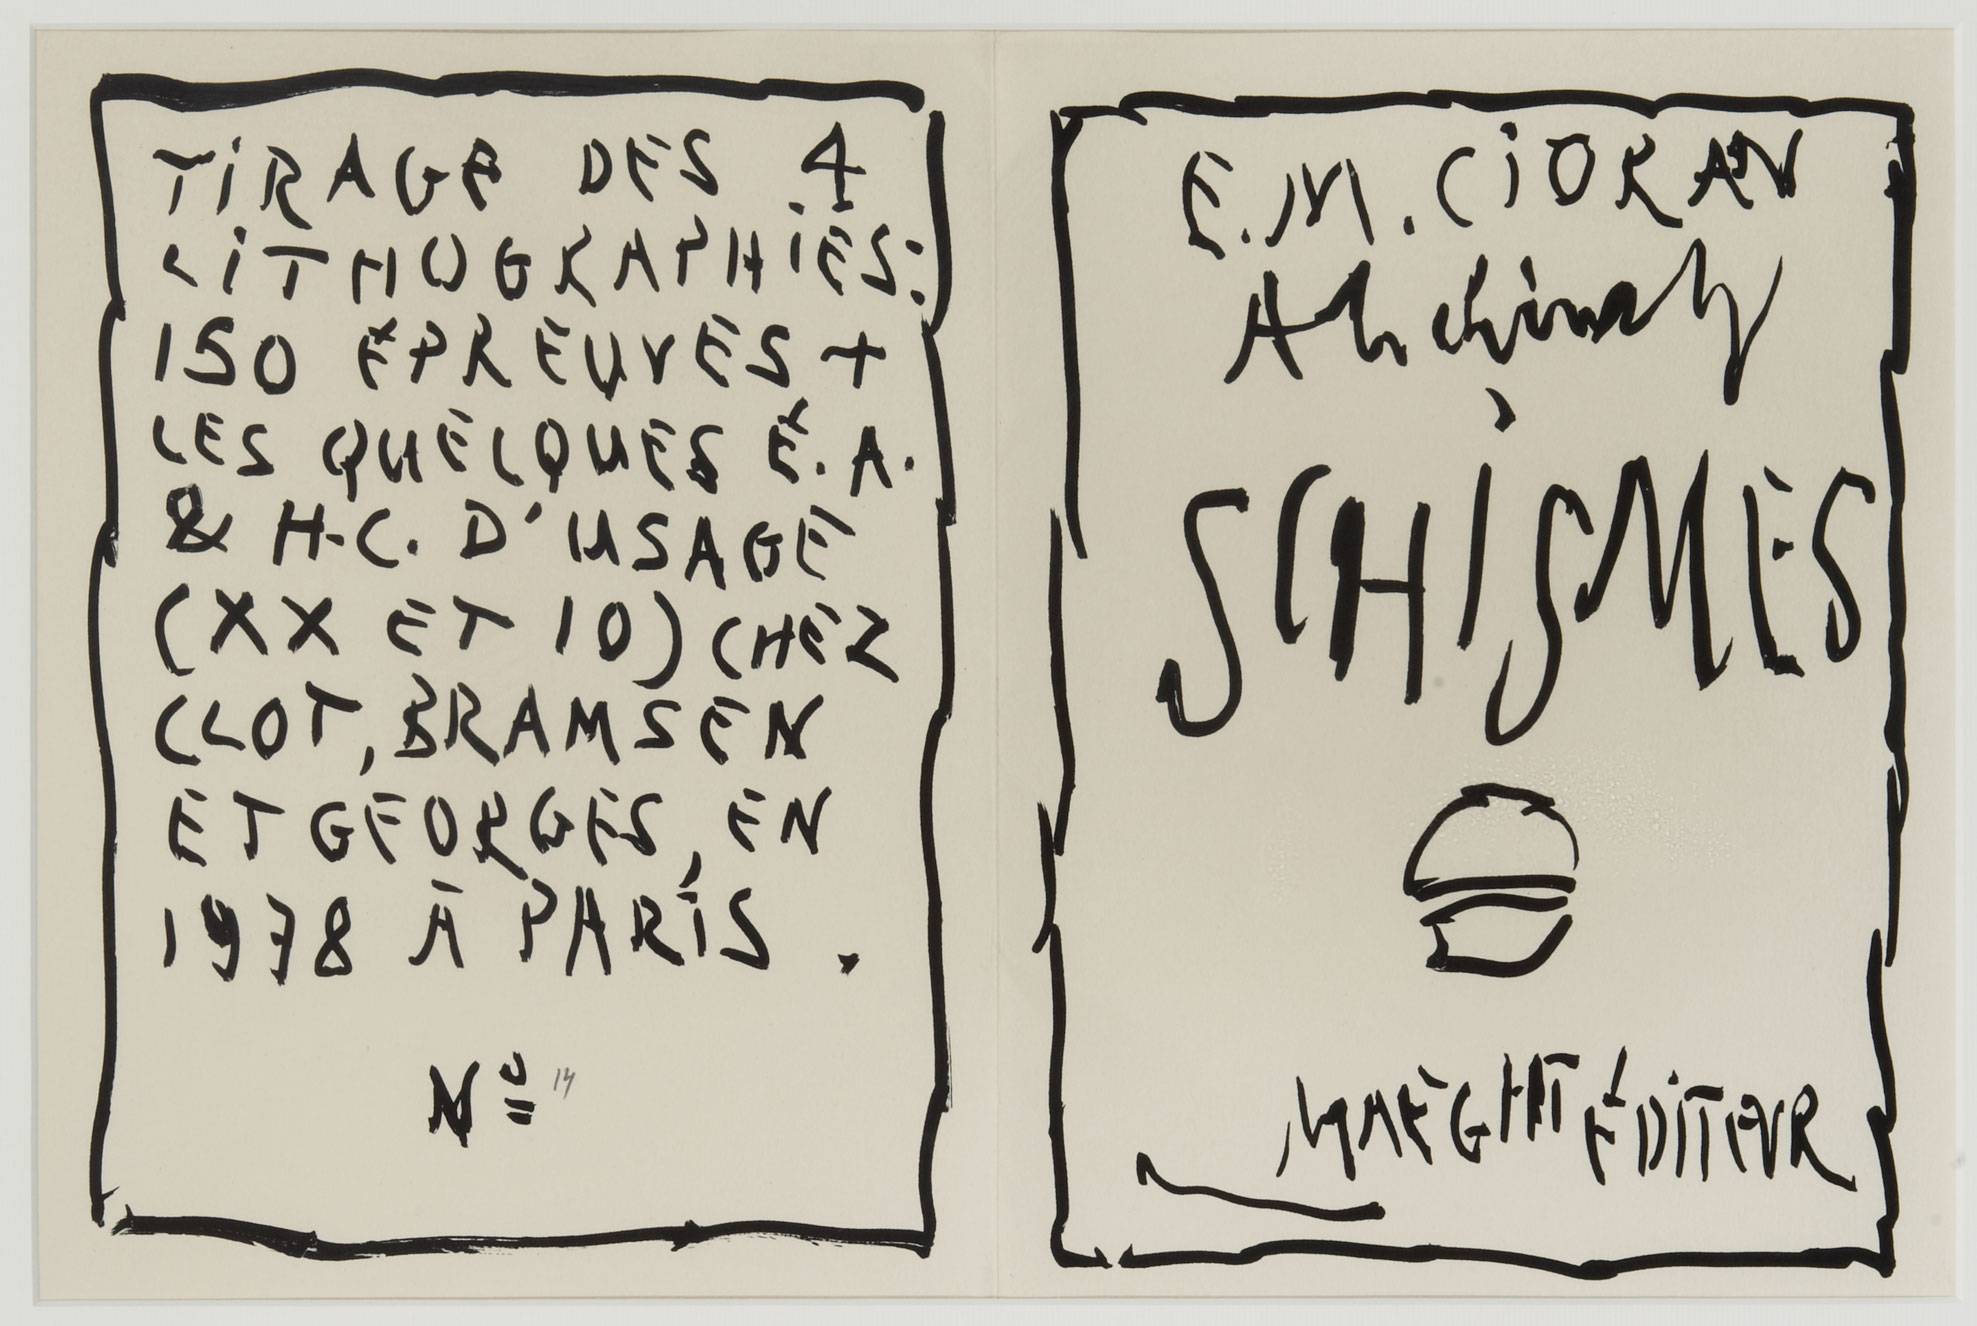 TIRAGE DES 4
LITHOGRAPHIES:
150 ÉPREUVES +
LES QUELQUES É.A.
& H.C. D'USAGE
(XX ET 10) CHEZ
CLOT, BRAMSEN
ET GEORGES, EN
1978 À PARIS.
Nº 14
E.M. CIORAN
Alechinsky
SCHISMES
MAEGHT ÉDITEUR